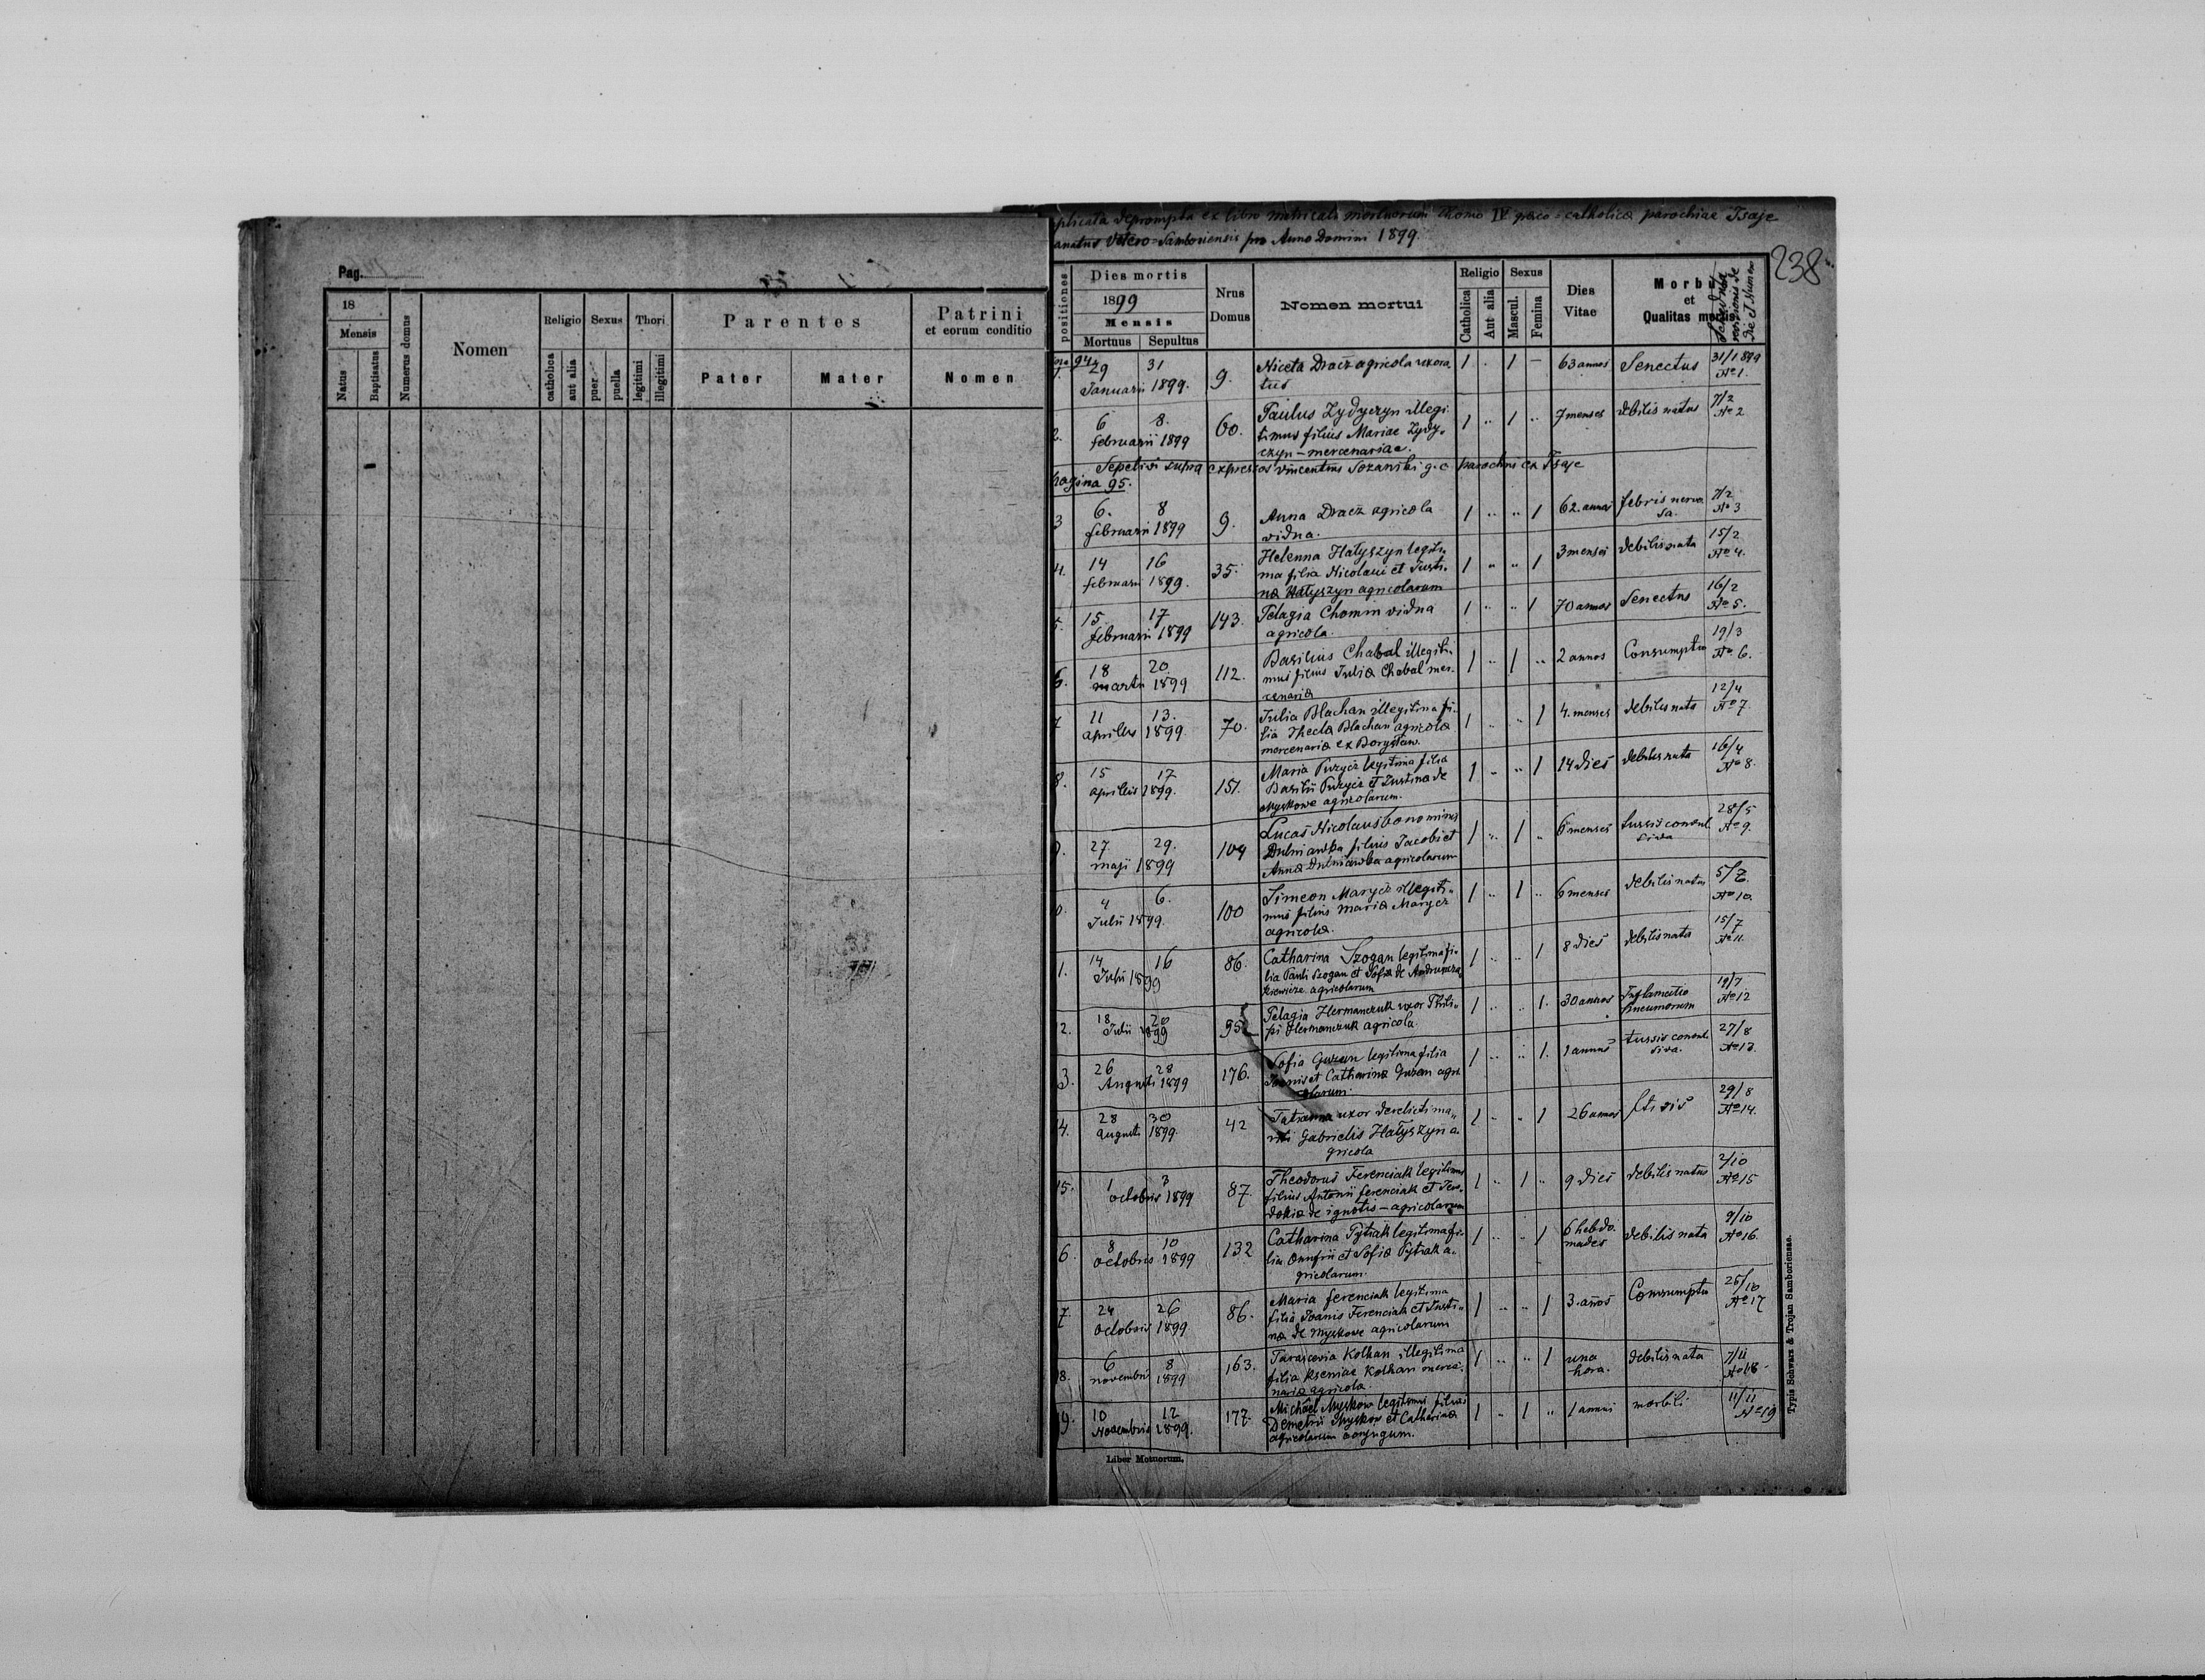 Pag.
18
Mensis
Natus
Baptisatus
Numerus domus
Nomen
Religio
catholica
aut alia
Sexus
puer
puella
Thori
legitimi
illegitimi
Parentes
Pater
Mater
Patrini
et eorum conditio
Nomen
plicata deprompta ex libro matricali mortuorum Thomo IV graeco=catholica parochiae Tsaje
anatus Vetero=Samboriensis pro Anno Domini 1899.
238
positiones
Dies mortis
1899
Mensis
Mortuus Sepultus
Nrus
Domus
Nomen mortui
Religio
Catholica
Aut alia
Sexus
Mascul.
Femina
Dies
Vitae
Morbus
et
Qualitas mortis
die et Numero
94
29 31 Niceta Dracz agricola uxora 63 annos Senectus 31/1 899
Januarii 1899. 9. tus No 1.
2. 6 8. 60. Paulus Zydyczyn illegi 7 menses debilis natus 7/2
februarii 1899 timus filius Mariae Zydy- No 2
czyn - mercenariae.
Sepelivi supra expressos Vincentius Sozanski g. c. parochus ex Tsaje
pagina 95.
3 6. 8 9. Anna Dracz agricola 62. annos febris nervo 7/2
februarii 1899 vidua. sa. No 3
4. 14 16 35. Helenna Hatyszyn legiti- 3 menses debilis nata 15/2
februarii 1899. ma filia Nicolaii et Justi- No 4.
na Hatyszyn agricolarum
5. 15. 17 143. Pelagia Chomin vidua 70 annos Senectus 16/2
februarii 1899 agricola. No 5.
6. 18 20. 112. Basilius Chabal illegiti- 2 annos Consumptio 19/3
martii 1899 mus filius Julia Chabal mer- No 6.
cenaria
7 11 13. 70. Julia Blachan illegitima fi- 4. menses debilis nata 12/4
aprilis 1899 lia Thecla Blachan agricola No 7.
mercenaria ex Borystaw.
8. 15 17 151. Maria Puzycz legitima filia 14 dies debilis nata 16/4
aprilis 1899. Basilii Puzycz et Justina de No 8.
Myskowe agricolarum.
9. 27 29. 104 Lucas Nicolaus bonominis 6 menses tussis convul 28/5
maji 1899 Dulniawka filius Jacobi et siva No 9.
Anna Dulniawka agricolarum
0. 4 6. 100 Simeon Marycz illegiti- 6 menses debilis natus 5/7
Julii 1899. mus filius Maria Marycz No 10.
agricola.
1. 14 16 86. Catharina Szogan legitima fi- 8 dies debilis nata 15/7
Julii 1899 lia Pauli Szogan et Sofia de No 11.
agricolarum
2. 18 20 95 Pelagia Hermanczuk uxor Phili- 30 annos Inflamatio 19/7
Julii 1899 pi Hermanczuk agricola. pneumorum No 12
3. 26 28 176. Sofia Guzan legitima filia 1 annus tussis convul 27/8
Augusti 1899 Joanis et Catharina Guzan agri siva. No 13.
colarum.
4. 28 30 42 Tatianna uxor derelicti ma- 26 annos ftisis 29/8
Augusti 1899. riti Gabrielis Hatyszyn a- No 14.
gricola
15. 1 3 87. Theodorus Ferenciak legitimus 9 dies debilis natus 2/10
octobris 1899 filius Antonii ferenciak et No 15
de ignotis - agricolarum
6. 8 10 132 Catharina Pytiak legitima fi- 6 hebdo. debilis nata 9/10
octobris 1899 lia Onufrii et Sofia Pytiak a- mades No 16.
gricolarum.
7. 24 26 86. Maria ferenciak legitima 3 años Consumptio 25/10
octobris 1899 filia Joanis Ferenciak et Justi- No 17
na de Myskowe agricolarum
8. 6 8 163. Parascevia Kolhan illegitima una debilis nata 7/11
novembri 1899 filia Kseniae Kolhan merce- hora. No 18
naria agricola.
19. 10 12 177. Michael Myskow legitimus filius 1 annus morbili 11/11
Novembris 1899. Demetrii Myskow et Catharina No 19
agricolarum conjugum.
Liber Motuorum.
Typis Schwarz & Trojan Samboriensae.